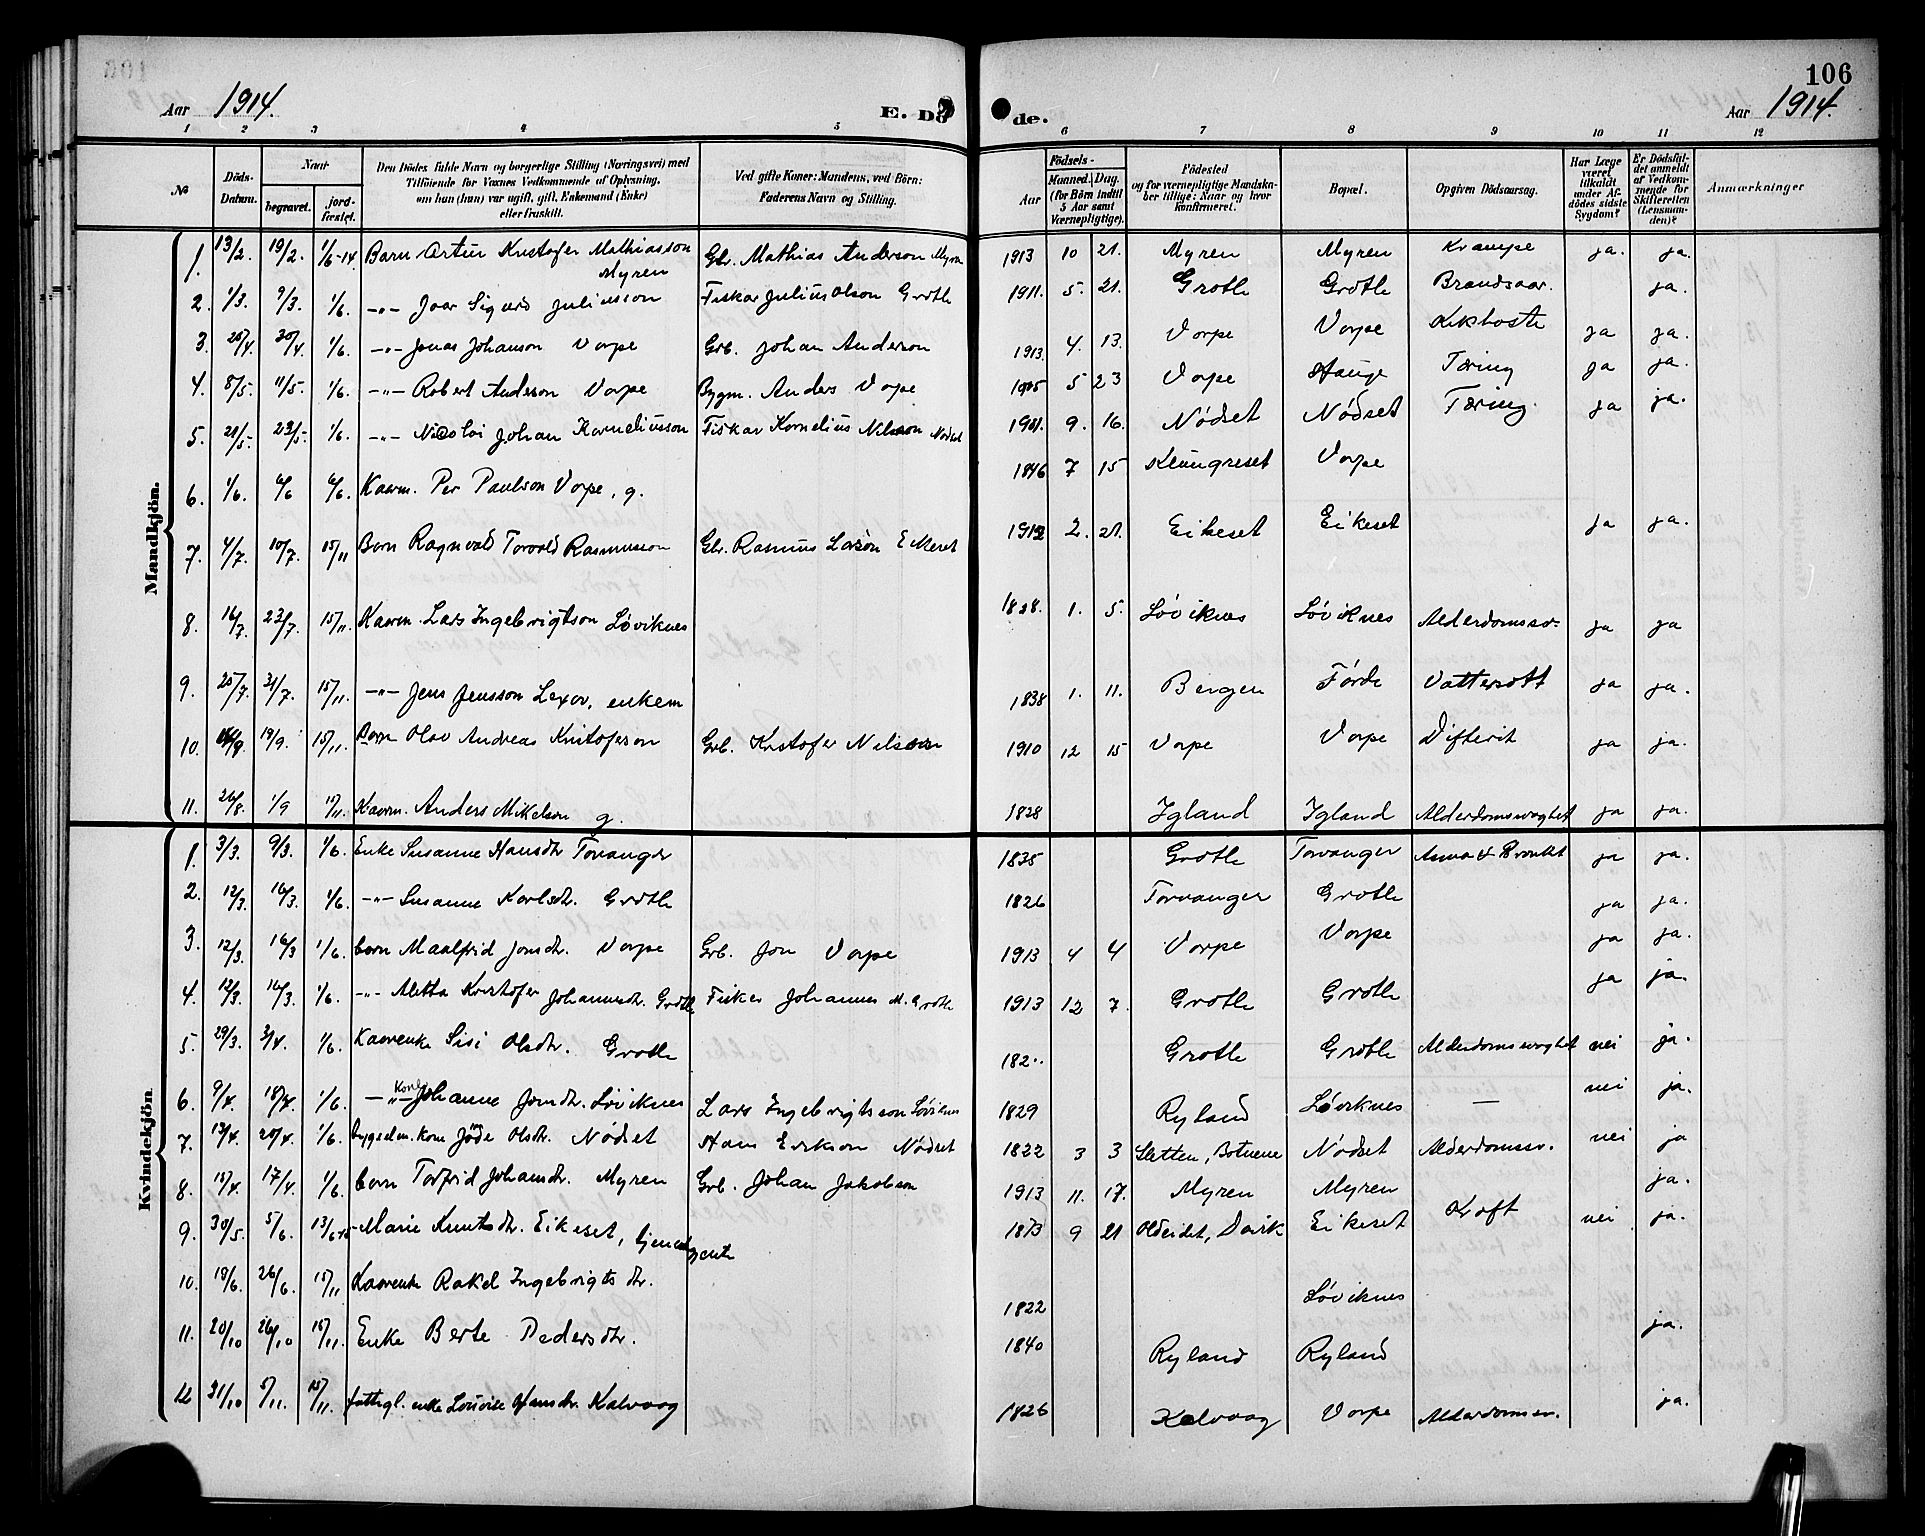 106
Aar 1914.
E. Dö
de.
Aar 1914.
1 2 3 4 5 6 7 8 9 10 11 12
No
Döds-Datum.
Naar
begravet.
jord-fæstet.
Den Dödes fulde Navn og borgerlige Stilling (Næringsvei) med
Tilföiende for Voxnes Vedkommende af Oplysning,
om han (hun) var ugift, gift, Enkemand (Enke)
eller fraskilt.
Ved gifte Koner: Mandens, ved Börn:
Faderens Navn og Stilling.
Födsels-
Aar
Maaned. Dag.
(for Börn indtil
5 Aar samt
Værnepligtige).
Födested
og for værnepligtige Mandska-
ber tillige: Naar og hvor
konfirmeret.
Bopæl.
Opgiven Dödsaarsag.
Har Læge
været
tilkaldt
under Af-
dödes sidste
Sygdom?
Er Dödsfal-
det anmeldt
af Vedkom-
mende for
Skifteretten
(Lensman-
den)?
Anmærkninger
Mandkjön.
1. 13/2. 19/2. 1/6-14. Barn Artur Kristofer Mathiasson Myren Gbr. Mathias Anderson Myren 1913 10 21. Myren Myren Krampe ja. ja.
2. 1/3. 9/3. 1/6. -"- Joar Sigurd Juliusson Fiskar Julius Olson Grotle 1911. 5. 21. Grotle Grotle Brandsaar. ja.
3. 20/4. 1/6. -"- Jonas Johanson Vorpe Grb. Johan Anderson 1913. 4. 13. Vorpe Vorpe Kikhoste ja ja.
4. 8/5. 11/5. 1/6. -"- Robert Anderson Vorpe Bygm. Anders Vorpe 1905 5 23 Vorpe Hauge Tæring ja ja.
5. 21/5. 23/5. 1/6. -"- Nicolai Johan Korneliusson Fiskar Kornelius Nilsson Nødset 9. 16. Nødset Nødset Tæring. ja ja.
6. 1/6. 6/6 6/6. Kaarm. Per Paulson Vorpe, g. 1846 7 15 Klungreset Vorpe
7. 4/7. 10/7. 15/11 Born Ragnvald Torvald Rasmusson Gbr. Rasmus Larson Eikeset 1912 2. 21. Eikeset Eikeset ja ja.
8. 16/7. 23/7. 15/11. Kaarm. Lars Ingebrigtson Løviknes 1828. 1. 5. Løviknes Løviknes Alderdomssv. ja ja
9. 25/7. 31/7. 15/11. -"- Jens Jensson Lexov, enkem 1838 1. 11. Bergen Førde Vattersott ja ja.
10. 19/9. 15/11. Born Olav Andreas Kristoferson Grb. Kristofer Nilsson 1910 12 15 Vorpe Vorpe Difterit ja ja.
11. 26/8. 1/9 15/11. Kaarm. Anders Mikelson g. 1828 Igland Igland Alderdomsvaghet ja ja.
Kvindekjön
1. 3/3. 9/3. 1/6. Enke Susanne Hansdtr Torvanger 1835 Grotle Torvanger Asma & Bronkit ja ja.
2. 12/3. 16/3. 1/6. -"- Susanne Karlsdtr. Grotle 1826 Torvanger Grotle ja ja.
3. 12/3. 16/3 1/6. born Maalfrid Jonsdtr. Vorpe Grb. Jon Vorpe 1913 4 4 Vorpe Vorpe ja ja.
4. 12/3. 16/3. 1/6. -"- Aletta Kristofer Johannesdtr. Grotle Fisker Johannes M. Grotle 1913 12 7. Grotle Grotle ja ja.
5. 29/3. 3/4. 1/6. Kaarenke Sisi Olsdtr. Grotle 182.. Grotle Grotle Alderdomsvaghet nei ja.
6. 9/4. 18/4. 1/6. -"- Kone Johanne Jonsdtr. Løviknes Lars Ingebrigtsson Løviknes 1829 Ryland Løviknes — nei ja.
7. 13/4. 20/4. 1/6. bygselm. kone Jøde Olsdtr. Nødset Hans Erikson Nødset 1822 3 3 Sletten, Botnene Nødset Alderdomssv. nei ja
8. 13/4. 17/4. 1/6. born Torfrid Johansdtr. Myren Grb. Johan Jakobson 1913 11. 17. Myren Myren ja.
9. 30/5. 5/6. Marie Knutsdtr. Eikeset, tjenestgjente 1873 9 21 Oldeidet, Davik Eikeset Kræft nei ja.
10. 19/6. 26/6. 15/11 Kaarenke Rakel Ingebrigtsdtr. 1822 Løviknes
11. 20/10 26/10 15/11. Enke Berte Pedersdtr. 1840 Ryland Ryland ja.
12 31/10 5/11. 15/11. fattigl. enke Lovise Hansdtr. Kalvaag 1826 Kalvaag Vorpe Alderdomsv. ja.